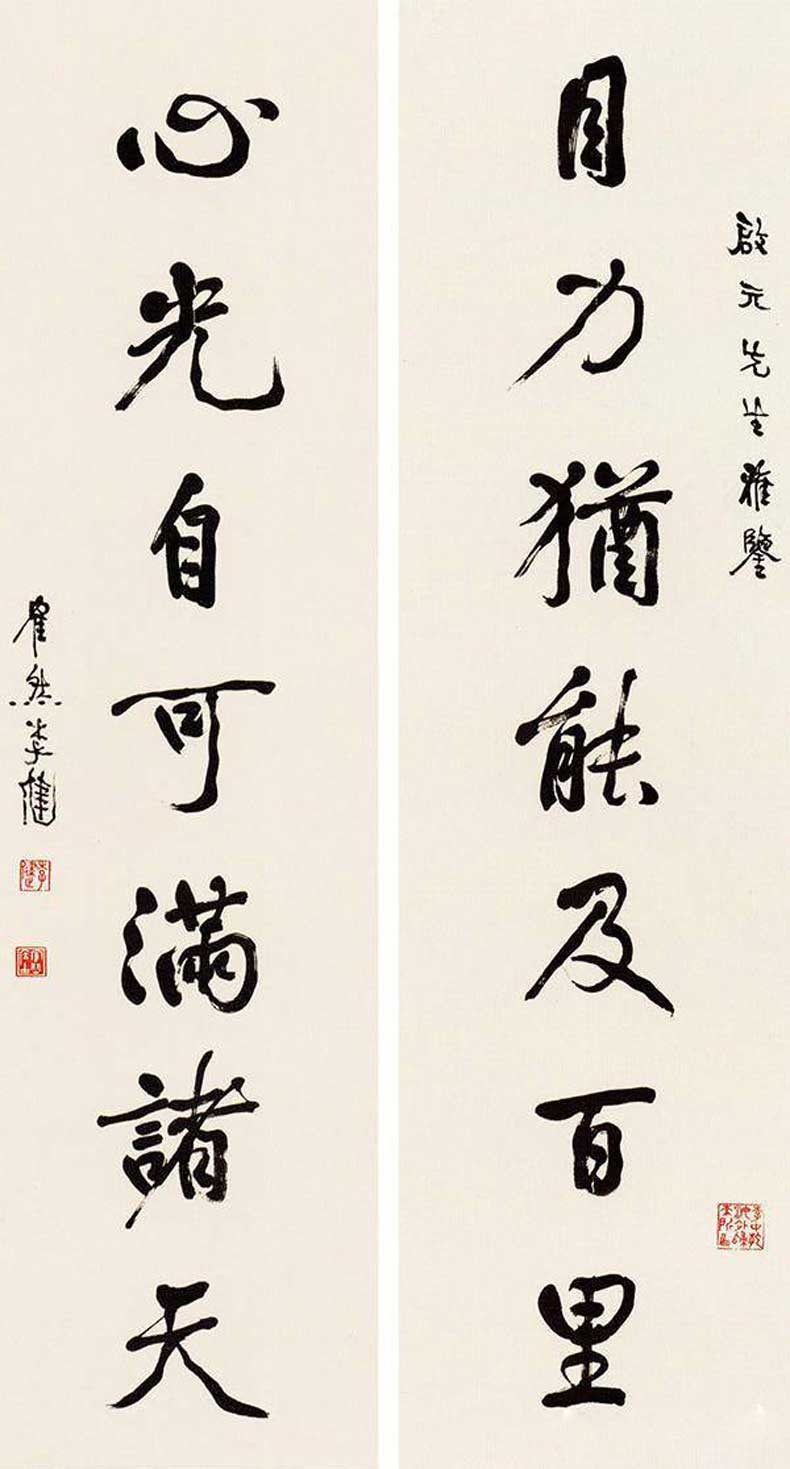 啟元先生雅鑒
目力猶能及百里
心光自可滿諸天
瞿然李健